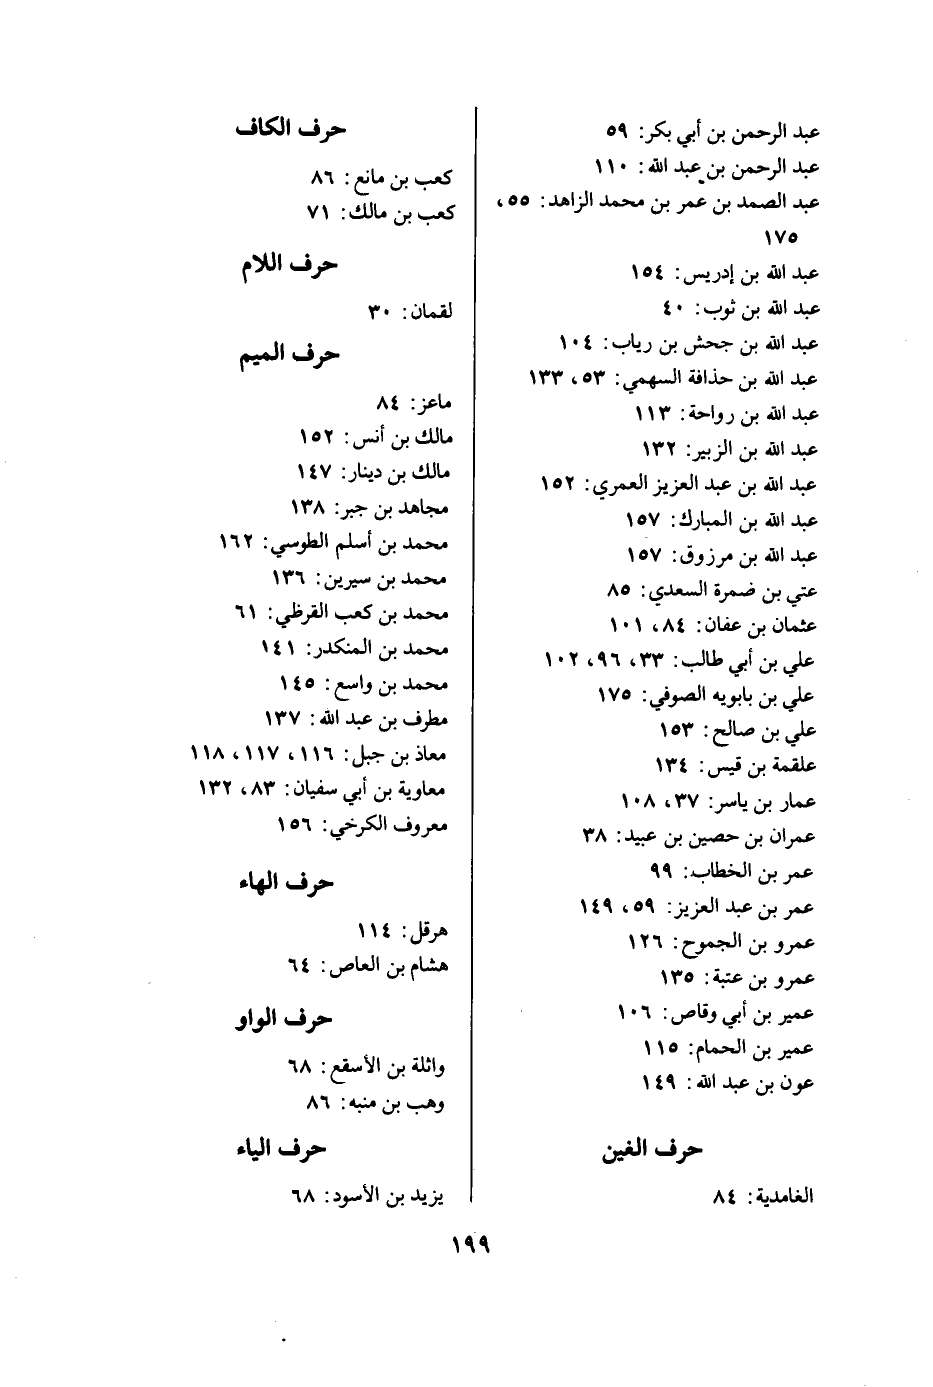 عبد الرحمن بن أبي بكر: ٥٩
عبد الرحمن بن عبد الله: ١١٠
عبد الصمد بن عمر بن محمد الزاهد: ٥٥،
١٧٥
عبد الله بن إدريس: ١٥٤
عبد الله بن ثوب: ٤٠
عبد الله بن جحش بن رياب: ١٠٤
عبد الله بن حذافة السهمي: ٥٣، ١٣٣
عبد الله بن رواحة: ١١٣
عبد الله بن الزبير: ١٣٢
عبد الله بن عبد العزيز العمري: ١٥٢
عبد الله بن المبارك: ١٥٧
عبد الله بن مرزوق: ١٥٧
عتي بن ضمرة السعدي: ٨٥
عثمان بن عفان: ٨٤، ١٠١
علي بن أبي طالب: ٣٣، ٩٦، ١٠٢
علي بن بابويه الصوفي: ١٧٥
علي بن صالح: ١٥٣
علقمة بن قيس: ١٣٤
عمار بن ياسر: ٣٧، ١٠٨
عمران بن حصين بن عبيد: ٣٨
عمر بن الخطاب: ٩٩
عمر بن عبد العزيز: ٥٩، ١٤٩
عمرو بن الجموح: ١٢٦
عمرو بن عتبة: ١٣٥
عمير بن أبي وقاص: ١٠٦
عمير بن الحمام: ١١٥
عون بن عبد الله: ١٤٩
حرف الغين
الغامدية: ٨٤
حرف الكاف
كعب بن مانع: ٨٦
كعب بن مالك: ٧١
حرف اللام
لقمان: ٣٠
حرف الميم
ماعز: ٨٤
مالك بن أنس: ١٥٢
مالك بن دينار: ١٤٧
مجاهد بن جبر: ١٣٨
محمد بن أسلم الطوسي: ١٦٢
محمد بن سيرين: ١٣٦
محمد بن كعب القرظي: ٦١
محمد بن المنكدر: ١٤١
محمد بن واسع: ١٤٥
مطرف بن عبد الله: ١٣٧
معاذ بن جبل: ١١٦، ١١٧، ١١٨
معاوية بن أبي سفيان: ٨٣، ١٣٢
معروف الكرخي: ١٥٦
حرف الهاء
هرقل: ١١٤
هشام بن العاص: ٦٤
حرف الواو
واثلة بن الأسقع: ٦٨
وهب بن منبه: ٨٦
حرف الياء
يزيد بن الأسود: ٦٨
١٩٩